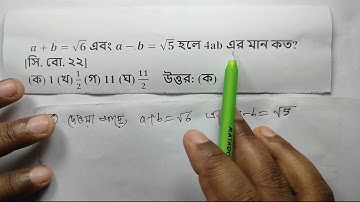 a + b = √6 এবং a − b = √5 হলে 4ab এর মান কত?
[সি. বো. ২২]
(ক) 1 (খ) 1/2 (গ) 11 (ঘ) 11/2 উত্তর: (ক)
দেওয়া আছে, a+b=√6 -b=√5